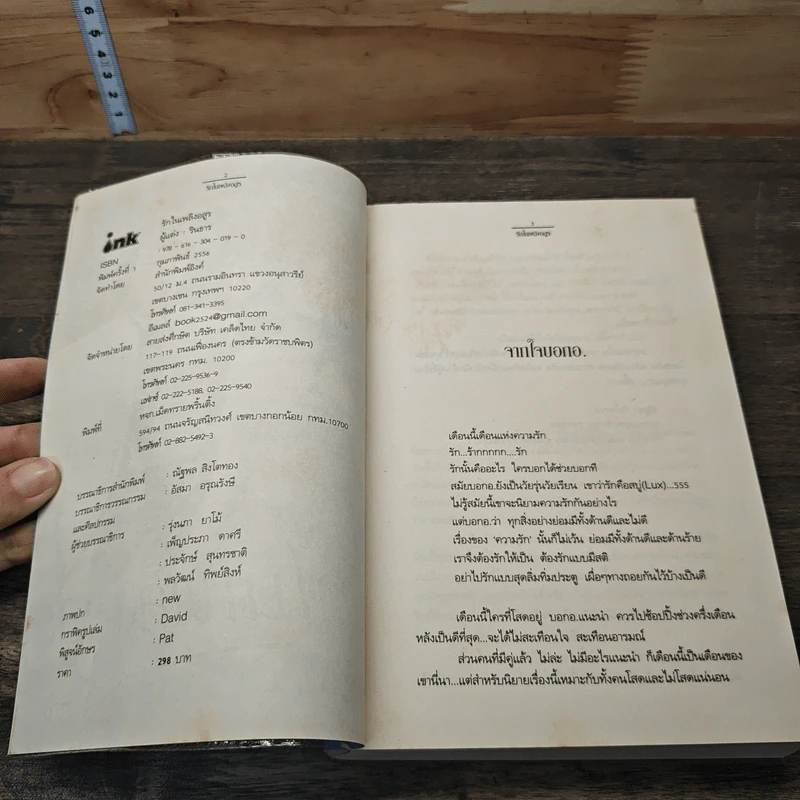 6 5 4 3 2 1
2
รักในเพลิงอสูร
ink
รักในเพลิงอสูร
ผู้แต่ง : รินธาร
ISBN : 978 - 616 - 304 - 019 - 0
พิมพ์ครั้งที่ 1 กุมภาพันธ์ 2556
จัดทำโดย สำนักพิมพ์อิงค์
50/12 ม.4 ถนนรามอินทรา แขวงอนุสาวรีย์
เขตบางเขน กรุงเทพฯ 10220
โทรศัพท์ 081-341-3395
อีเมลล์ book2524@gmail.com
จัดจำหน่ายโดย สายส่งศึกษิต บริษัท เคล็ดไทย จำกัด
117-119 ถนนเฟื่องนคร (ตรงข้ามวัดราชบพิตร)
เขตพระนคร กทม. 10200
โทรศัพท์ 02-225-9536-9
แฟกซ์ 02-222-5188, 02-225-9540
พิมพ์ที่ หจก.เม็ดทรายพริ้นติ้ง
594/94 ถนนจรัญสนิทวงศ์ เขตบางกอกน้อย กทม.10700
โทรศัพท์ 02-882-5492-3
บรรณาธิการสำนักพิมพ์ : ณัฐพล สิงโตทอง
บรรณาธิการวรรณกรรม : อัสมา อรุณรังษี
และศิลปกรรม
ผู้ช่วยบรรณาธิการ : รุ่งนภา ยาโม้
: เพ็ญประภา ตาศรี
: ประจักษ์ สุนทรชาติ
: พลวัฒน์ ทิพย์สิงห์
ภาพปก : new
กราฟิครูปเล่ม : David
พิสูจน์อักษร : Pat
ราคา : 298 บาท
3
รักในเพลิงอสูร
จากใจบอกอ.
เดือนนี้เดือนแห่งความรัก
รัก...ร้ากกกกก....รัก
รักนั้นคืออะไร ใครบอกได้ช่วยบอกที
สมัยบอกอ.ยังเป็นวัยรุ่นวัยเรียน เขาว่ารักคือสบู่(Lux)...555
ไม่รู้สมัยนี้เขาจะนิยามความรักกันอย่างไร
แต่บอกอ.ว่า ทุกสิ่งอย่างย่อมมีทั้งด้านดีและไม่ดี
เรื่องของ ‘ความรัก’ นั้นก็ไม่เว้น ย่อมมีทั้งด้านดีและด้านร้าย
เราจึงต้องรักให้เป็น ต้องรักแบบมีสติ
อย่าไปรักแบบสุดลิ่มทิ่มประตู เผื่อๆทางถอยกันไว้บ้างเป็นดี
เดือนนี้ใครที่โสดอยู่ บอกอ.แนะนำ ควรไปช้อปปิ้งช่วงครึ่งเดือน
หลังเป็นดีที่สุด...จะได้ไม่สะเทือนใจ สะเทือนอารมณ์
ส่วนคนที่มีคู่แล้ว ไม่ล่ะ ไม่มีอะไรแนะนำ ก็เดือนนี้เป็นเดือนของ
เขานี่นา...แต่สำหรับนิยายเรื่องนี้เหมาะกับทั้งคนโสดและไม่โสดแน่นอน